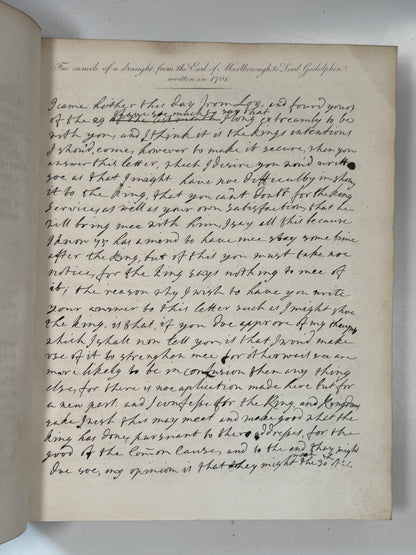 Fac simile of a draught from the Earl of Marlborough to Lord Godolphin
written in 1701.
I came hether this Day from Loo, and found yours
of the 29 I long extreamly to be
with you, and I think it is the Kings intentions
I should, come, however to make it secure, when you
answer this letter, which I desire you woud write
soe as that I might have noe difficulty in show
it to the King, that you can't doubt for the King
service, as well as your own satisfaction, that he
will bring mee with him, I say all this because
I know has a mend to have mee stay some time
after the King, but of this you must take noe
notice, for the King says nothing to mee of
it; the reason why I wish to have you write
your answer to this letter such as I might show
the King, is that, if you doe approve of my
which I shall now tell you, is that I woud make
use of it to strengthen mee for otherways wee are
more likely to be in confusion then any thing
else, for there is noe application made here but for
a new part. and I confess for the King, and Kingdoms
sake I wish this may meet and make good what the
King has done, pursuant to there addresses, for the
good of the Common Cause, and to the end they might
doe soe, my opinion is that they might the 30